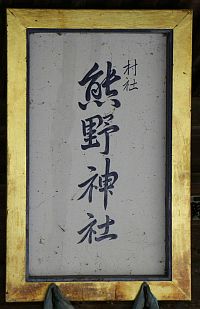 村社
熊野神社